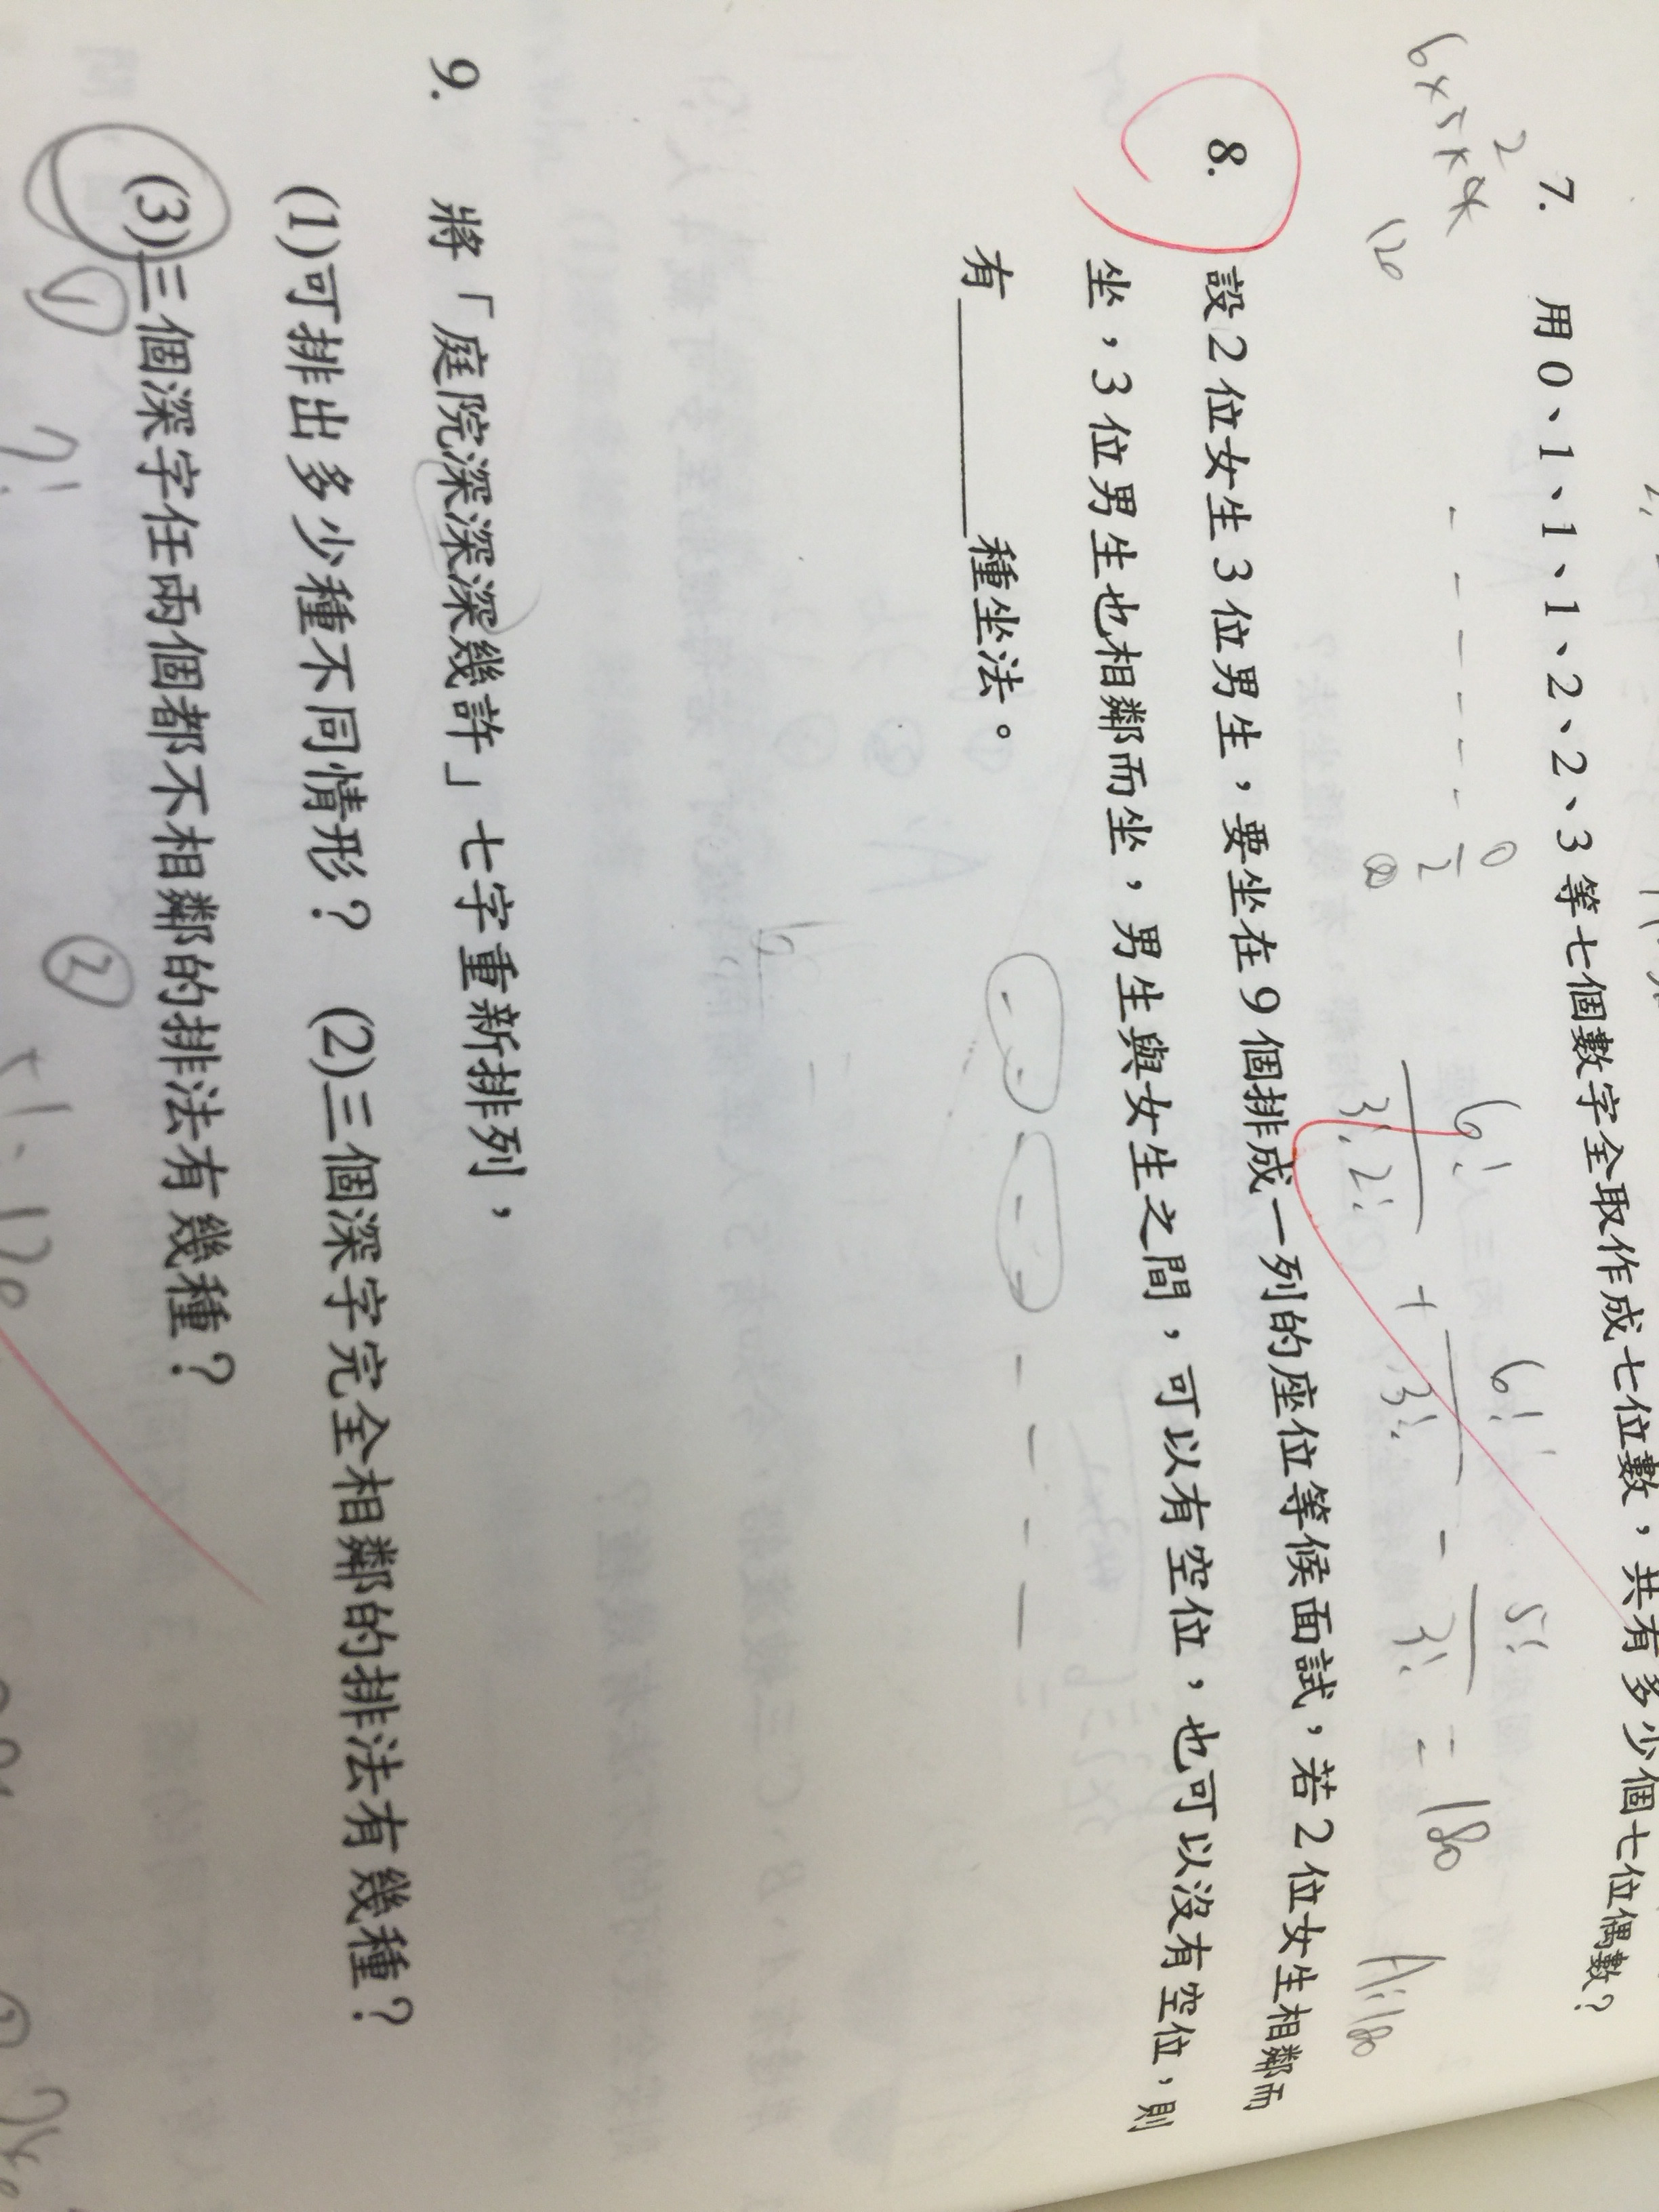 7. 用0、1、1、1、2、2、3等七個數字全取作成七位數，共有多少個七位偶數？
6×5×4
2
120
0
2
6!
3! 2!
+
6!
3!
-
5!
3!
= 180
A:180
8. 設2位女生3位男生，要坐在9個排成一列的座位等候面試，若2位女生相鄰而
坐，3位男生也相鄰而坐，男生與女生之間，可以有空位，也可以沒有空位，則
有______種坐法。
9. 將「庭院深深深幾許」七字重新排列，
(1)可排出多少種不同情形？ (2)三個深字完全相鄰的排法有幾種？
(3)三個深字任兩個都不相鄰的排法有幾種？
①
7!
②